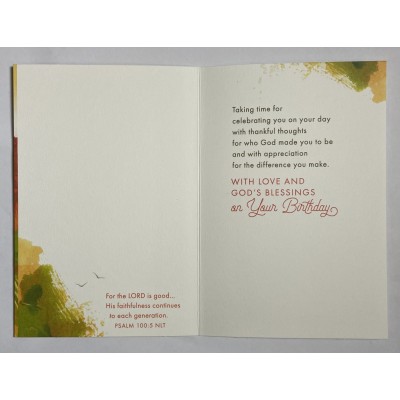 For the LORD is good...
His faithfulness continues
to each generation.
PSALM 100:5 NLT
Taking time for
celebrating you on your day
with thankful thoughts
for who God made you to be
and with appreciation
for the difference you make.
WITH LOVE AND
GOD'S BLESSINGS
on Your Birthday